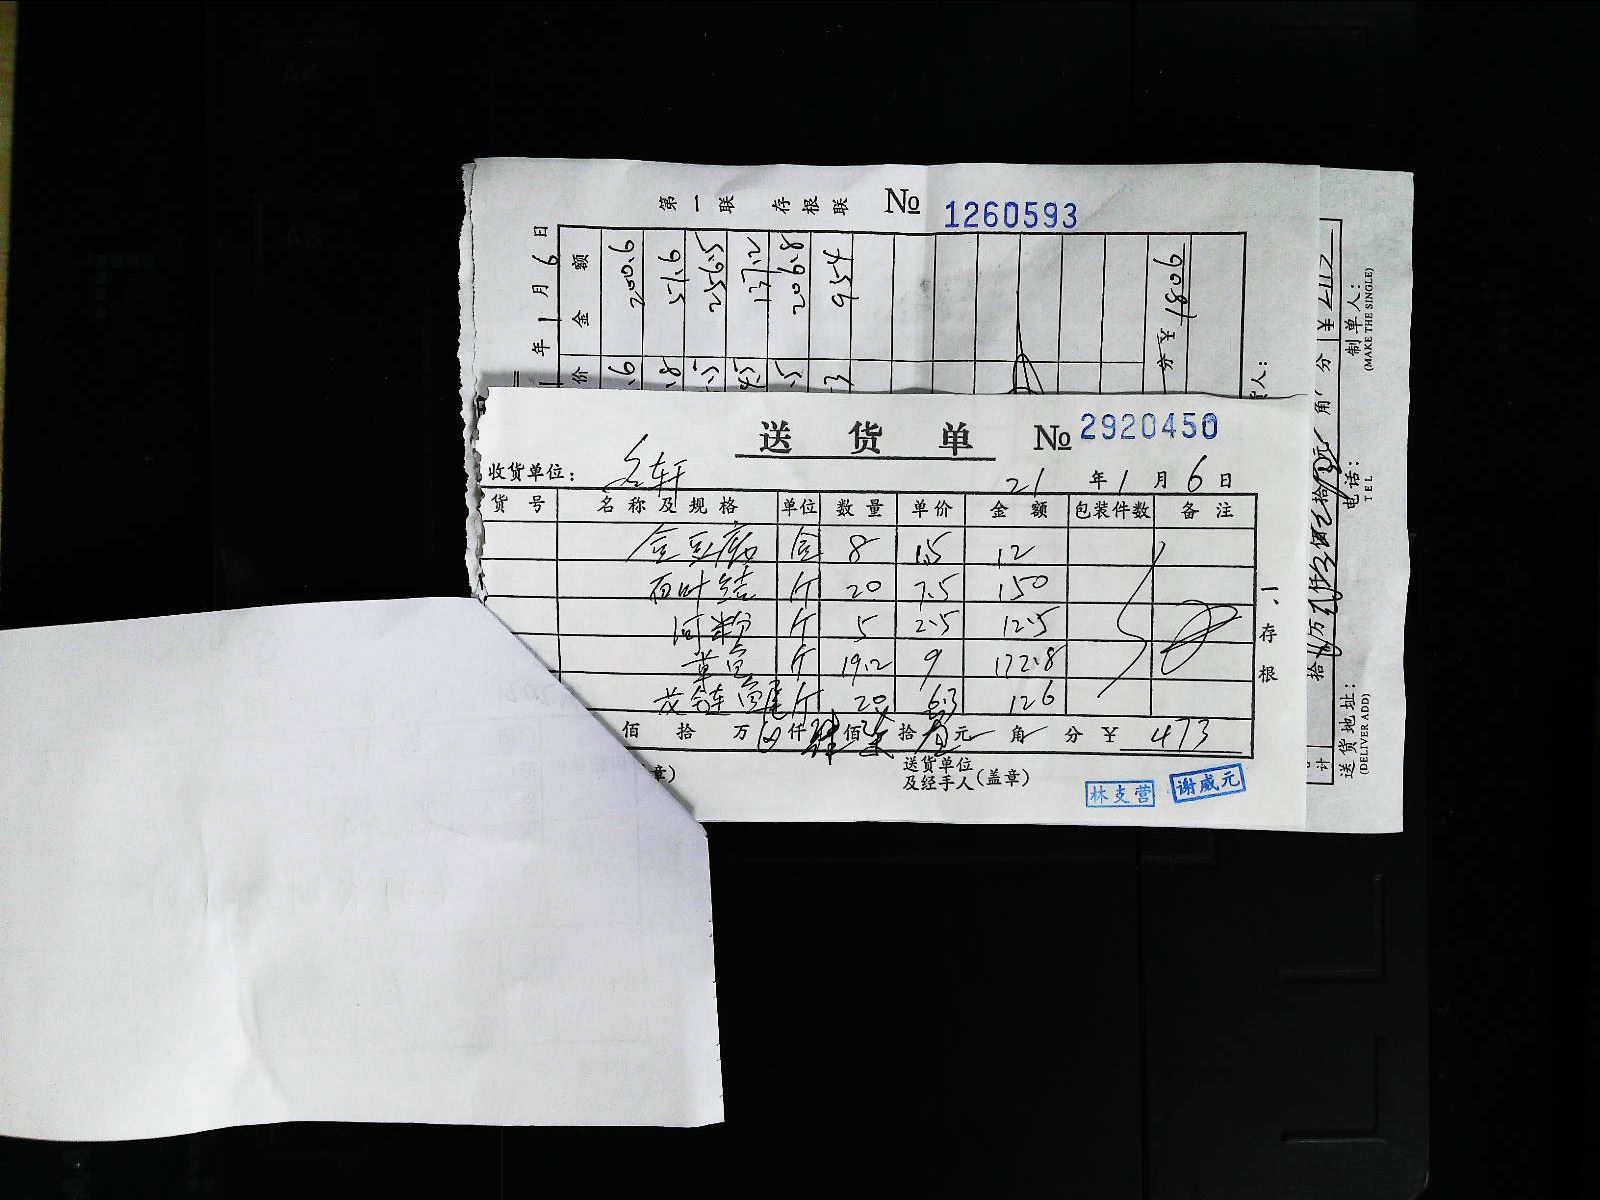 第一联 存根联 № 1260593
年 1 月 6 日
金额 200.6 57.6 256.5 137.2 206.8 954
价
分 ¥ 1809
送货单 № 2920450
收货单位: 名轩 21 年 1 月 6 日
货号 名称及规格 单位 数量 单价 金额 包装件数 备注
盒豆腐 盒 8 1.5 12
百叶结 斤 20 7.5 150
河粉 斤 5 2.5 12.5
草鱼 斤 19.2 9 172.8
花鲢鱼尾 斤 20 6.3 126
佰 拾 万 仟 肆 佰 柒 拾 叁 元 角 分 ¥ 473
章)
送货单位
及经手人(盖章)
林支营 谢威元
一、存根
拾 万 仟 佰 拾 元 角 分 ¥ 2112
计
送货地址:
(DELIVER ADD)
电话:
TEL
制单人:
(MAKE THE SINGLE)